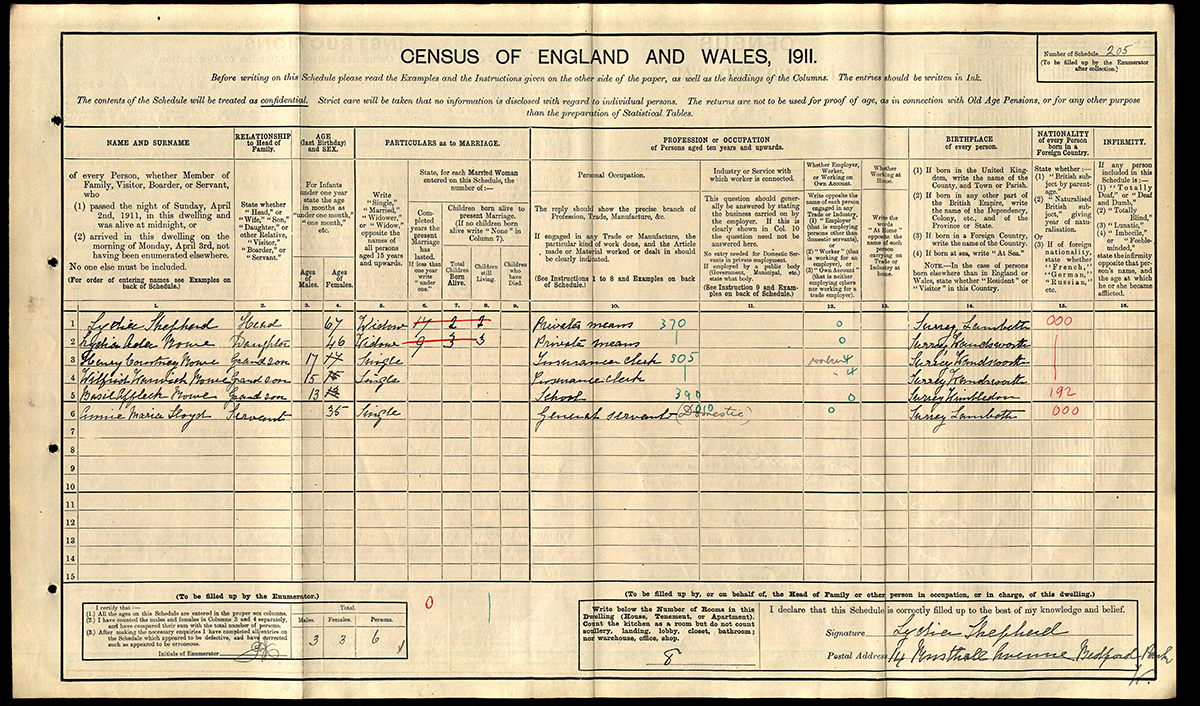 CENSUS OF ENGLAND AND WALES, 1911.
Number of Schedule 205
(To be filled up by the Enumerator
after collection.)
Before writing on this Schedule please read the Examples and the Instructions given on the other side of the paper, as well as the headings of the Columns. The entries should be written in Ink.
The contents of the Schedule will be treated as confidential. Strict care will be taken that no information is disclosed with regard to individual persons. The returns are not to be used for proof of age, as in connection with Old Age Pensions, or for any other purpose
than the preparation of Statistical Tables.
NAME AND SURNAME
of every Person, whether Member of
Family, Visitor, Boarder, or Servant,
who
(1) passed the night of Sunday, April
2nd, 1911, in this dwelling and
was alive at midnight, or
(2) arrived in this dwelling on the
morning of Monday, April 3rd, not
having been enumerated elsewhere.
No one else must be included.
(For order of entering names see Examples on
back of Schedule.)
RELATIONSHIP
to Head of
Family.
State whether
"Head," or
"Wife," "Son,"
"Daughter," or
other Relative,
"Visitor,"
"Boarder," or
"Servant."
AGE
(last Birthday)
and SEX.
For Infants
under one year
state the age
in months as
"under one month,"
"one month,"
etc.
Ages
of
Males.
Ages
of
Females.
PARTICULARS as to MARRIAGE.
Write
"Single,"
"Married,"
"Widower,"
or "Widow,"
opposite the
names of
all persons
aged 15 years
and upwards.
State, for each Married Woman
entered on this Schedule, the
number of:—
Com-
pleted
years the
present
Marriage
has
lasted.
If less than
one year
write
"under
one."
Children born alive to
present Marriage.
(If no children born
alive write "None" in
Column 7).
Total
Children
Born
Alive.
Children
still
Living.
Children
who
have
Died.
PROFESSION or OCCUPATION
of Persons aged ten years and upwards.
Personal Occupation.
The reply should show the precise branch of
Profession, Trade, Manufacture, &c.
If engaged in any Trade or Manufacture, the
particular kind of work done, and the Article
made or Material worked or dealt in should
be clearly indicated.
(See Instructions 1 to 8 and Examples on back
of Schedule.)
Industry or Service
with which worker is connected.
This question should gener-
ally be answered by stating
the business carried on by
the employer. If this is
clearly shown in Col. 10
the question need not be
answered here.
No entry needed for Domestic Ser-
vants in private employment.
If employed by a public body
(Government, Municipal, etc.)
state what body.
(See Instruction 9 and Exam-
ples on back of Schedule.)
Whether Employer,
Worker,
or Working on
Own Account.
Write opposite the
name of each person
engaged in any
Trade or Industry,
(1) "Employer"
(that is employing
persons other than
domestic servants),
or
(2) "Worker" (that
is working for an
employer), or
(3) "Own Account"
(that is neither
employing others
nor working for a
trade employer).
Whether
Working at
Home.
Write the
words
"At Home"
opposite the
name of each
person
carrying on
Trade or
Industry at
home.
BIRTHPLACE
of every person.
(1) If born in the United King-
dom, write the name of the
County, and Town or Parish.
(2) If born in any other part of
the British Empire, write the
name of the Dependency,
Colony, etc., and of the
Province or State.
(3) If born in a Foreign Country,
write the name of the Country.
(4) If born at sea, write "At Sea."
NOTE.—In the case of persons
born elsewhere than in England or
Wales, state whether "Resident" or
"Visitor" in this Country.
NATIONALITY
of every Person
born in a
Foreign Country.
State whether:—
(1) "British sub-
ject by parent-
age."
(2) "Naturalised
British sub-
ject," giving
year of natu-
ralisation.
Or
(3) If of foreign
nationality,
state whether
"French,"
"German,"
"Russian,"
etc.
INFIRMITY.
If any person
included in this
Schedule is:—
(1) "Totally
Deaf," or "Deaf
and Dumb,"
(2) "Totally
Blind,"
(3) "Lunatic,"
(4) "Imbecile,"
or "Feeble-
minded,"
state the infirmity
opposite that per-
son's name, and
the age at which
he or she became
afflicted.
1. 2. 3. 4. 5. 6. 7. 8. 9. 10. 11. 12. 13. 14. 15. 16.
1 Lydia Shepherd Head 67 Widow 17 2 2 Private means 370 0 Surrey Lambeth 000
2 Lydia Ada Rowe Daughter 46 Widow 9 3 3 Private means 0 Surrey Wandsworth
3 Henry Courtney Rowe Grandson 17 Single Insurance Clerk 505 worker 4 Surrey Wandsworth
4 Wilfrid Warwick Rowe Grandson 15 Single Insurance Clerk 4 Surrey Wandsworth
5 Basil Affleck Rowe Grandson 13 School 390 0 Surrey Wimbledon 192
6 Annie Maria Lloyd Servant 35 Single General servant (Domestic) 010 0 Surrey Lambeth 000
7
8
9
10
11
12
13
14
15
(To be filled up by the Enumerator.)
I certify that:—
(1.) All the ages on this Schedule are entered in the proper sex columns.
(2.) I have counted the males and females in Columns 3 and 4 separately,
and have compared their sum with the total number of persons.
(3.) After making the necessary enquiries I have completed all entries on
the Schedule which appeared to be defective, and have corrected
such as appeared to be erroneous.
Initials of Enumerator
Total.
Males. Females. Persons.
3 3 6
0
(To be filled up by, or on behalf of, the Head of Family or other Person in occupation, or in charge, of this dwelling.)
Write below the Number of Rooms in this
Dwelling (House, Tenement, or Apartment).
Count the kitchen as a room but do not count
scullery, landing, lobby, closet, bathroom;
nor warehouse, office, shop.
8
I declare that this Schedule is correctly filled up to the best of my knowledge and belief.
Signature Lydia Shepherd
Postal Address 14 Rusthall Avenue Bedford Park
W.